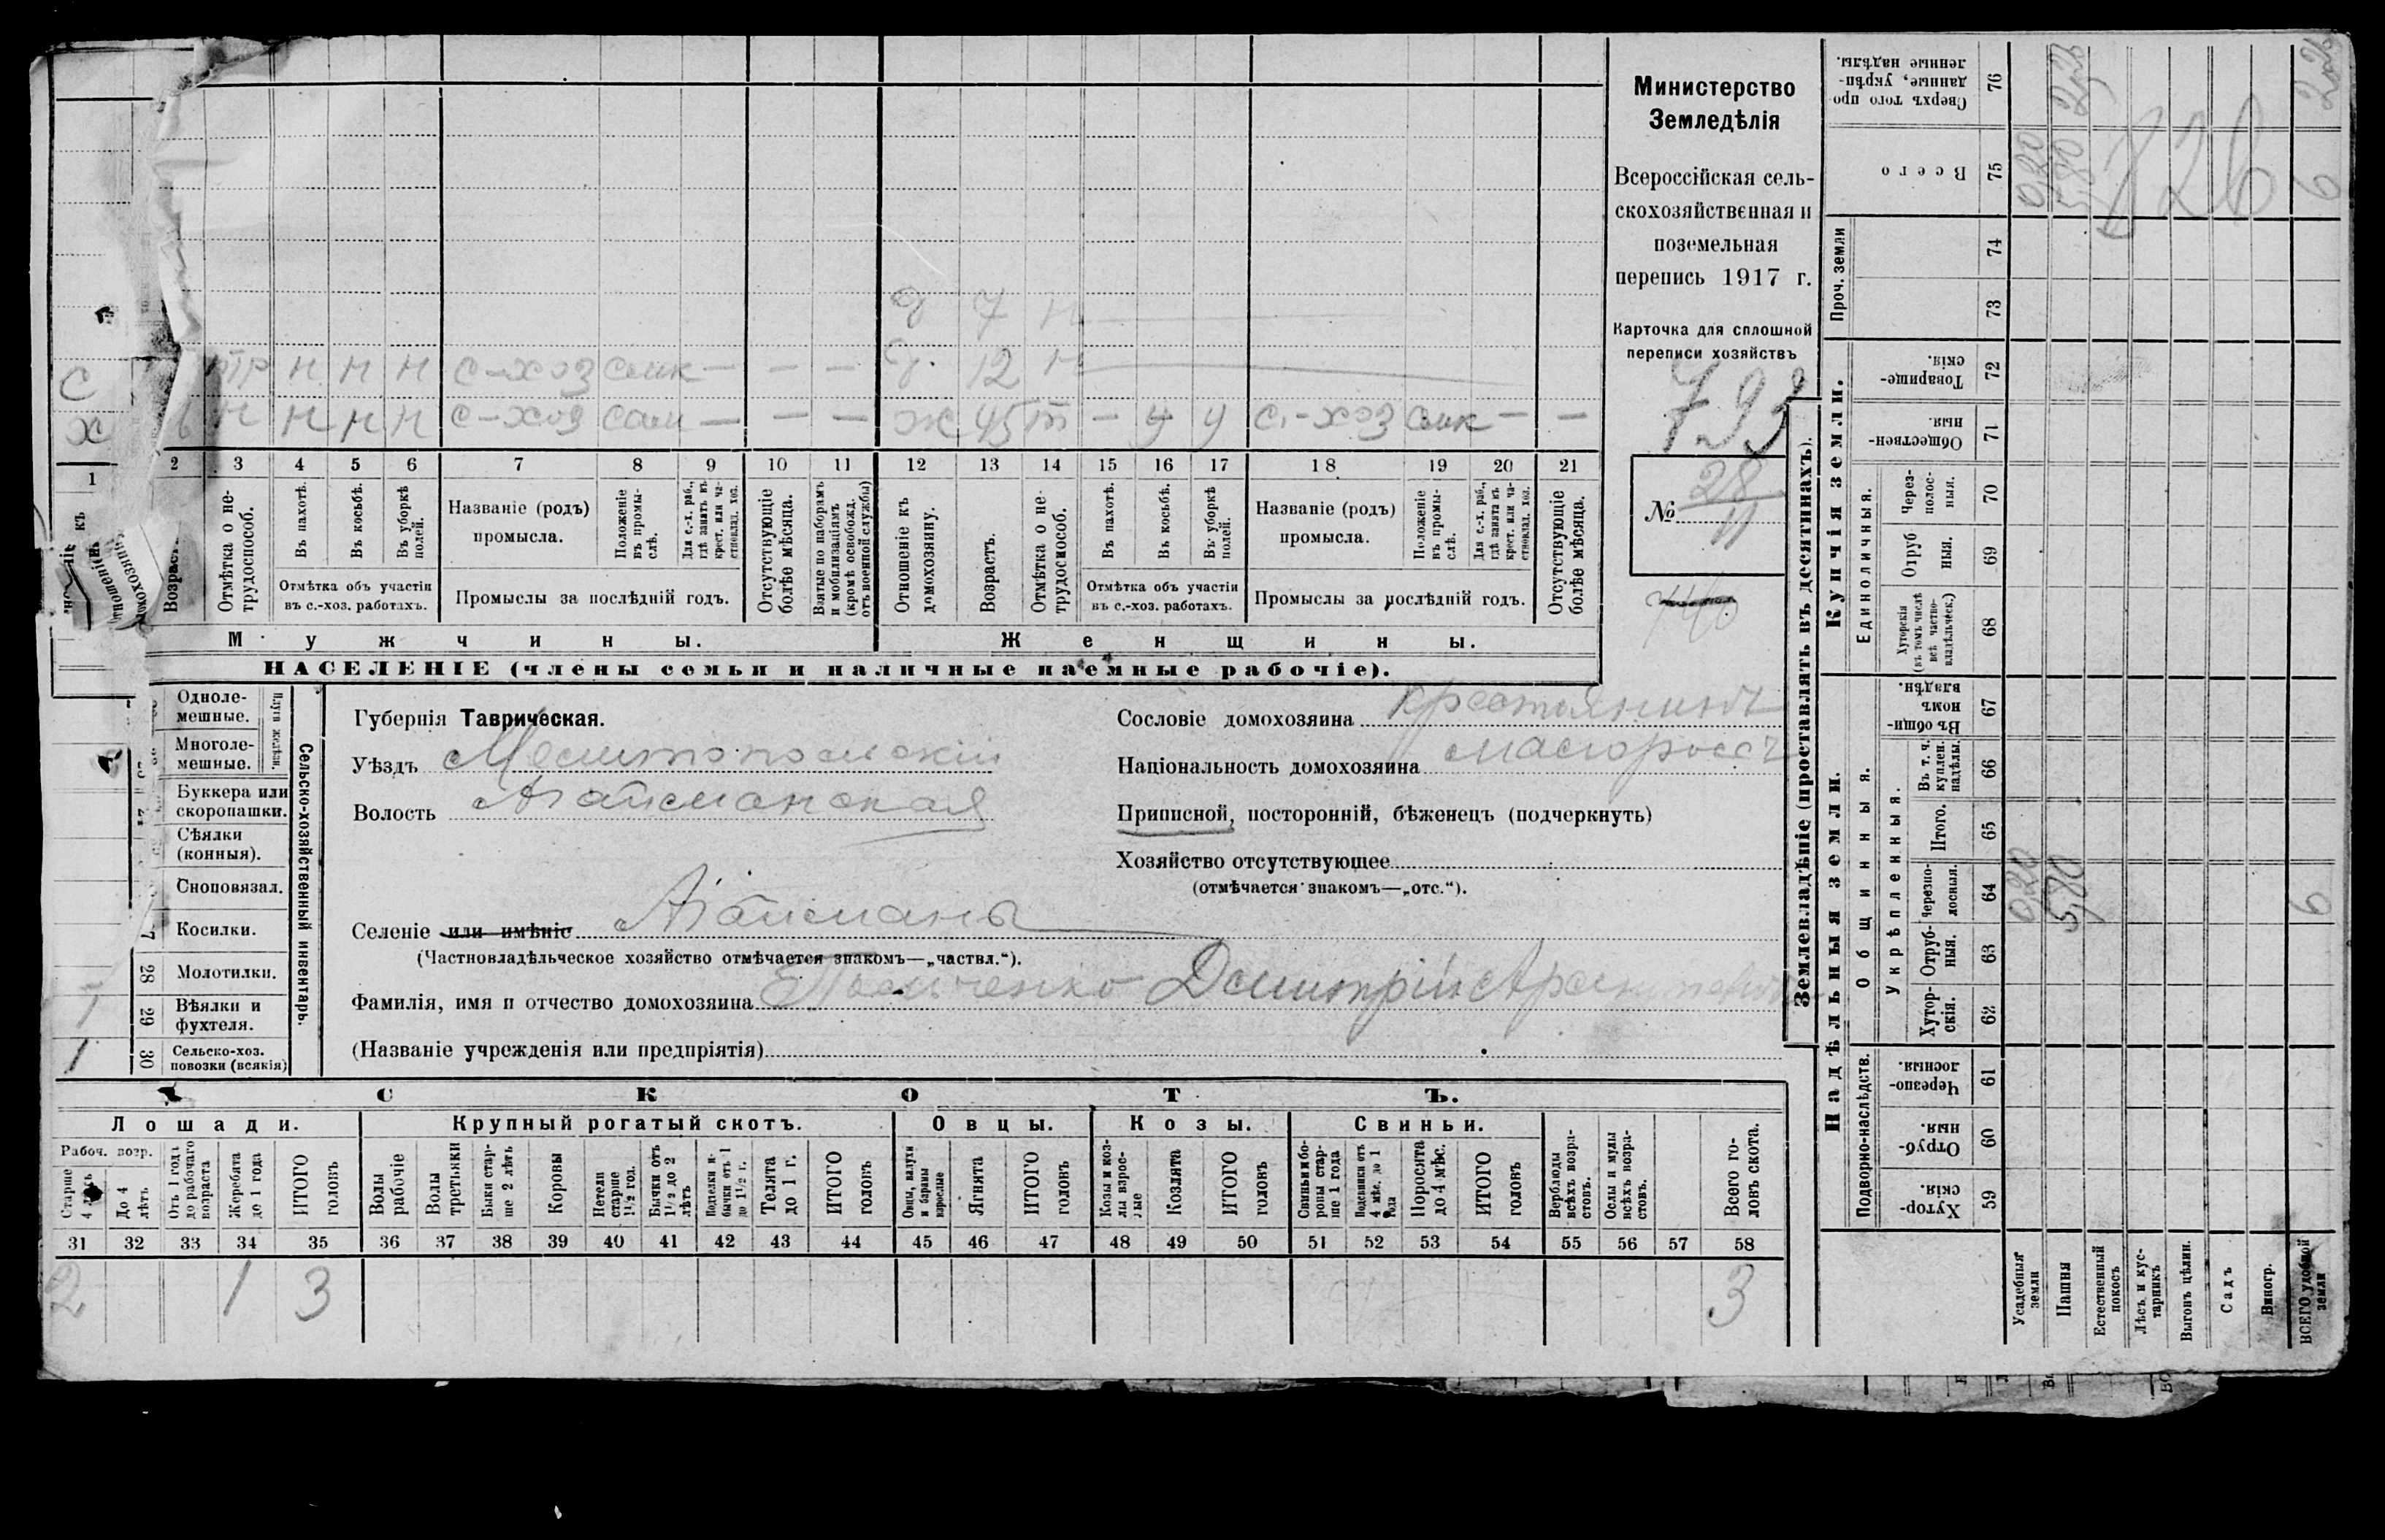 Министерство
Земледѣлія
Всероссійская сель-
скохозяйственная и
поземельная
перепись 1917 г.
Карточка для сплошной
переписи хозяйствъ
793
№ 28
11
740
д 7 н
С тр н н н с-хоз сшк — — — д. 12 н
Х н н н н с-хоз сам — — — ж 45 т — у у с.-хоз сшк — —
1 2 3 4 5 6 7 8 9 10 11 12 13 14 15 16 17 18 19 20 21
Возрастъ.
Отмѣтка о не-
трудоспособ.
Въ пахотѣ.
Въ косьбѣ.
Въ уборкѣ
полей.
Отмѣтка объ участіи
въ с.-хоз. работахъ.
Названіе (родъ)
промысла.
Положеніе
въ промы-
слѣ.
Для с.-х. раб.,
гдѣ занятъ въ
крест. или ча-
стновлад. хоз.
Промыслы за послѣдній годъ.
Отсутствующіе
болѣе мѣсяца.
Взятые по наборамъ
и мобилизаціямъ
(кромѣ освобожд.
отъ военной службы)
Отношеніе къ
домохозяину.
Возрастъ.
Отмѣтка о не-
трудоспособ.
Въ пахотѣ.
Въ косьбѣ.
Въ уборкѣ
полей.
Отмѣтка объ участіи
въ с.-хоз. работахъ.
Названіе (родъ)
промысла.
Положеніе
въ промы-
слѣ.
Для с.-х. раб.,
гдѣ занята въ
крест. или ча-
стновлад. хоз.
Промыслы за послѣдній годъ.
Отсутствующіе
болѣе мѣсяца.
Мужчины.
Женщины.
НАСЕЛЕНІЕ (члены семьи и наличные наемные рабочіе).
Сельско-хозяйственный инвентарь.
Плуги желѣзн.
Одноле-
мешные.
Многоле-
мешные.
Буккера или
скоропашки.
Сѣялки
(конныя).
Сноповязал.
Косилки.
28 Молотилки.
1 29 Вѣялки и
фухтеля.
1 30 Сельско-хоз.
повозки (всякія)
Губернія Таврическая.
Уѣздъ Мелитопольскій
Волость Агайманская
Селеніе или имѣніе Агайманы
(Частновладѣльческое хозяйство отмѣчается знакомъ—„частвл.“).
Фамилія, имя и отчество домохозяина Дмитрій
(Названіе учрежденія или предпріятія)
Сословіе домохозяина крестьянинъ
Національность домохозяина малороссъ
Приписной, посторонній, бѣженецъ (подчеркнуть)
Хозяйство отсутствующее
(отмѣчается знакомъ—„отс.“).
СКОТЪ.
Лошади. Крупный рогатый скотъ. Овцы. Козы. Свиньи.
Рабоч. возр.
Старше
4 лѣтъ
До 4
лѣтъ
Отъ 1 года
до рабочаго
возраста
Жеребята
до 1 года
ИТОГО
головъ
Волы
рабочіе
Волы
третьяки
Быки стар-
ше 2 лѣтъ
Коровы
Нетели
старше
1½ год.
Бычки отъ
1½ до 2
лѣтъ
Подтелки и
бычки отъ 1
до 1½ г.
Телята
до 1 г.
ИТОГО
головъ
Овцы, валухи
и бараны
взрослые
Ягнята
ИТОГО
головъ
Козы и коз-
лы взрос-
лые
Козлята
ИТОГО
головъ
Свиньи и бо-
ровы стар-
ше 1 года
Подсвинки отъ
4 мѣс. до 1
года
Поросята
до 4 мѣс.
ИТОГО
головъ
Верблюды
всѣхъ возра-
стовъ.
Ослы и мулы
всѣхъ возра-
стовъ.
Всего го-
ловъ скота.
31 32 33 34 35 36 37 38 39 40 41 42 43 44 45 46 47 48 49 50 51 52 53 54 55 56 57 58
2 1 3 3
Землевладѣніе (проставлять въ десятинахъ).
Надѣльныя земли.
Купчія земли.
Проч. земли
Подворно-наслѣдств.
Общинныя.
Укрѣпленныя.
Единоличныя.
Хутор-
скія.
59
Отруб-
ныя.
60
Черезпо-
лосныя.
61
Хутор-
скія.
62
Отруб-
ныя.
63
Черезпо-
лосныя.
64
Итого.
65
Въ т. ч.
куплен.
надѣлы.
66
Въ общин-
номъ
владѣн.
67
Хуторскія
(въ томъ числѣ
всѣ частно-
владѣльческ.)
68
Отруб
ныя.
69
Через-
полос-
ныя.
70
Обществен-
ныя.
71
Товарище-
скія.
72
73
74
Всего
75
Сверхъ того про
данные, укрѣп-
ленные надѣлы.
76
Усадебныя
земли
0,20 0,20
Пашня
5,80 5,80
Естественный
покосъ
Лѣсъ и кус-
тарникъ
Выгонъ цѣлин.
Садъ
Виногр.
ВСЕГО удобной
земли
6 6
726